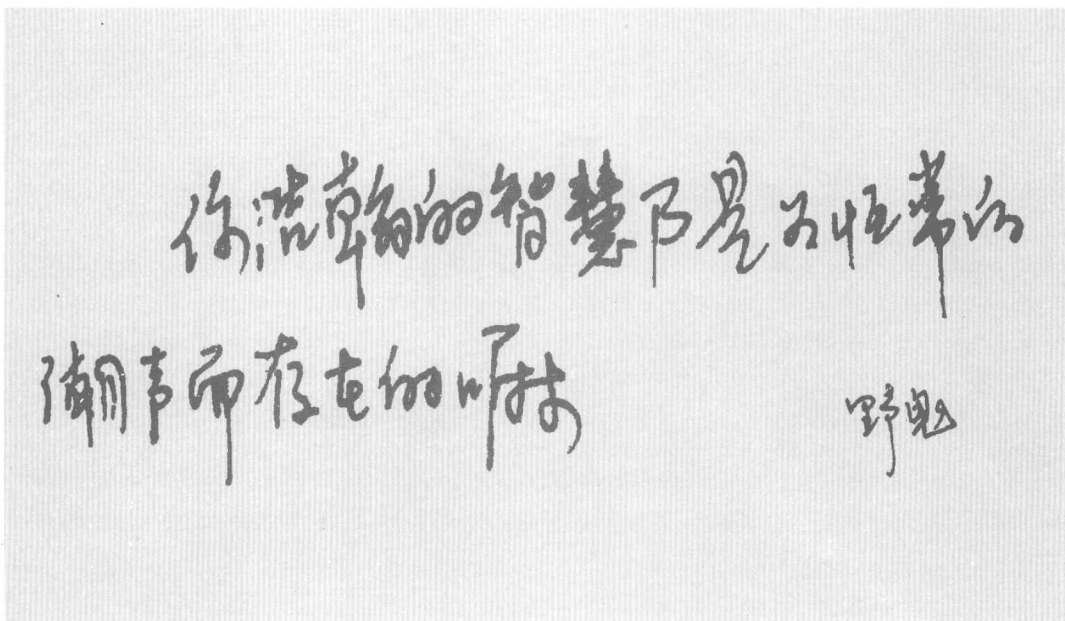 你浩翰的智慧乃是为恒常的
潮声而存在的嘛
野鬼